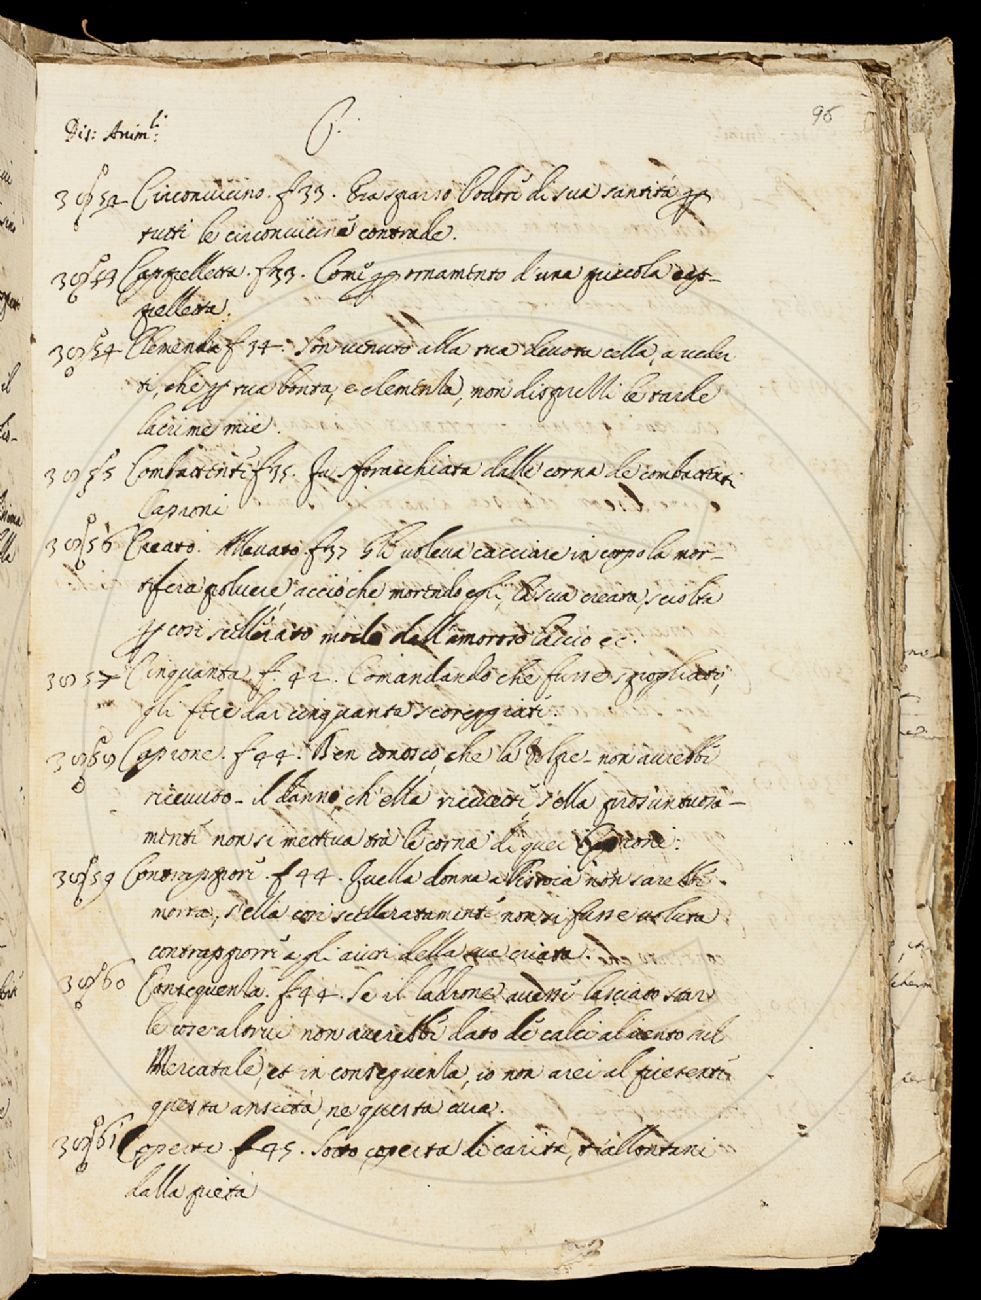 Dis: Anim.li C. 96
52 Circonuicino. f 33. Era sparso l'odore di sua santità per
tutti le circonuicine contrade.
53 Cappelletta. f 33. Come per ornamento d'una piccola cap-
pelletta.
54 Clemenza f 34. Son uenuto alla tua deuota cella, a ueder
ti, che per tua bontà, e clemenza, non disprezzi le tarde
lacrime mie.
55 Combattenti f 35. Fu sforacchiata dalle corna de combattenti
Caproni
56 Creato. Alleuato. f 37 Gli uoleua cacciare in corpo la mor-
tifera poluere acciò che morendo egli, la sua creata, sciolta
per così scellerato modo dall'amoroso laccio ec.
57 Cinquanta f. 42. Comandando che fusse spogliato,
gli fece dar cinquanta scoreggiate.
Caprone. f 44. Ben conosco, che la Volpe non aurebbe
riceuuto il danno, ch'ella riceuette, s'ella prosuntuosa-
mente non si metteua trà le corna di quei Caproni.
59 Contrapporre. f 44. Quella donna a Pistoia non sarebbe
morta, s'ella così scelleratamente non si fusse uoluta
contrapporre a gli auisi della sua creata.
60 Conseguenza. f. 44. Se il ladrone auesse lasciato star
le cose altrui non auerebbe dato de calci al uento sul
Mercatale, et in conseguenza, io non arei al presente
questa ansietà, ne questa cura.
61 Coperta f 45. Sotto coperta di carità, t'allontani
dalla pietà